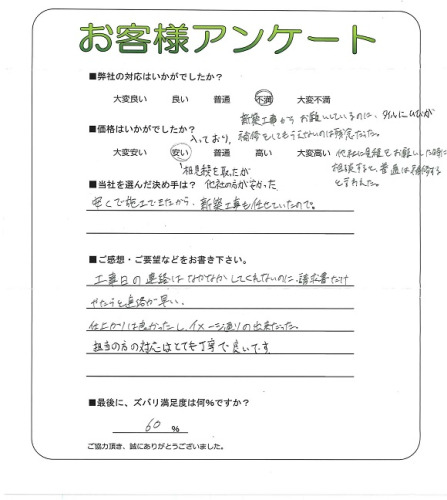 お客様アンケート
■弊社の対応はいかがでしたか？
大変良い 良い 普通 不満 大変不満
新築工事からお願いしているのに、タイルにひびが
■価格はいかがでしたか？
入っており、補修をしてもらえないのは残念だった。
大変安い 安い 普通 高い 大変高い
他社に見積をお願いした時に
相談すると、普通は補修する
と言われた。
相見積を取ったが
他社の方が安かった
■当社を選んだ決め手は？
安くで施工できたから、新築工事も任せていたので。
■ご感想・ご要望などをお書き下さい。
工事日の連絡はなかなかしてくれないのに、請求書だけ
やたらと連絡が早い。
仕上がりは良かったし、イメージ通りの出来だった。
担当の方の対応はとても丁寧で良いです。
■最後に、ズバリ満足度は何％ですか？
60 ％
ご協力頂き、誠にありがとうございました。